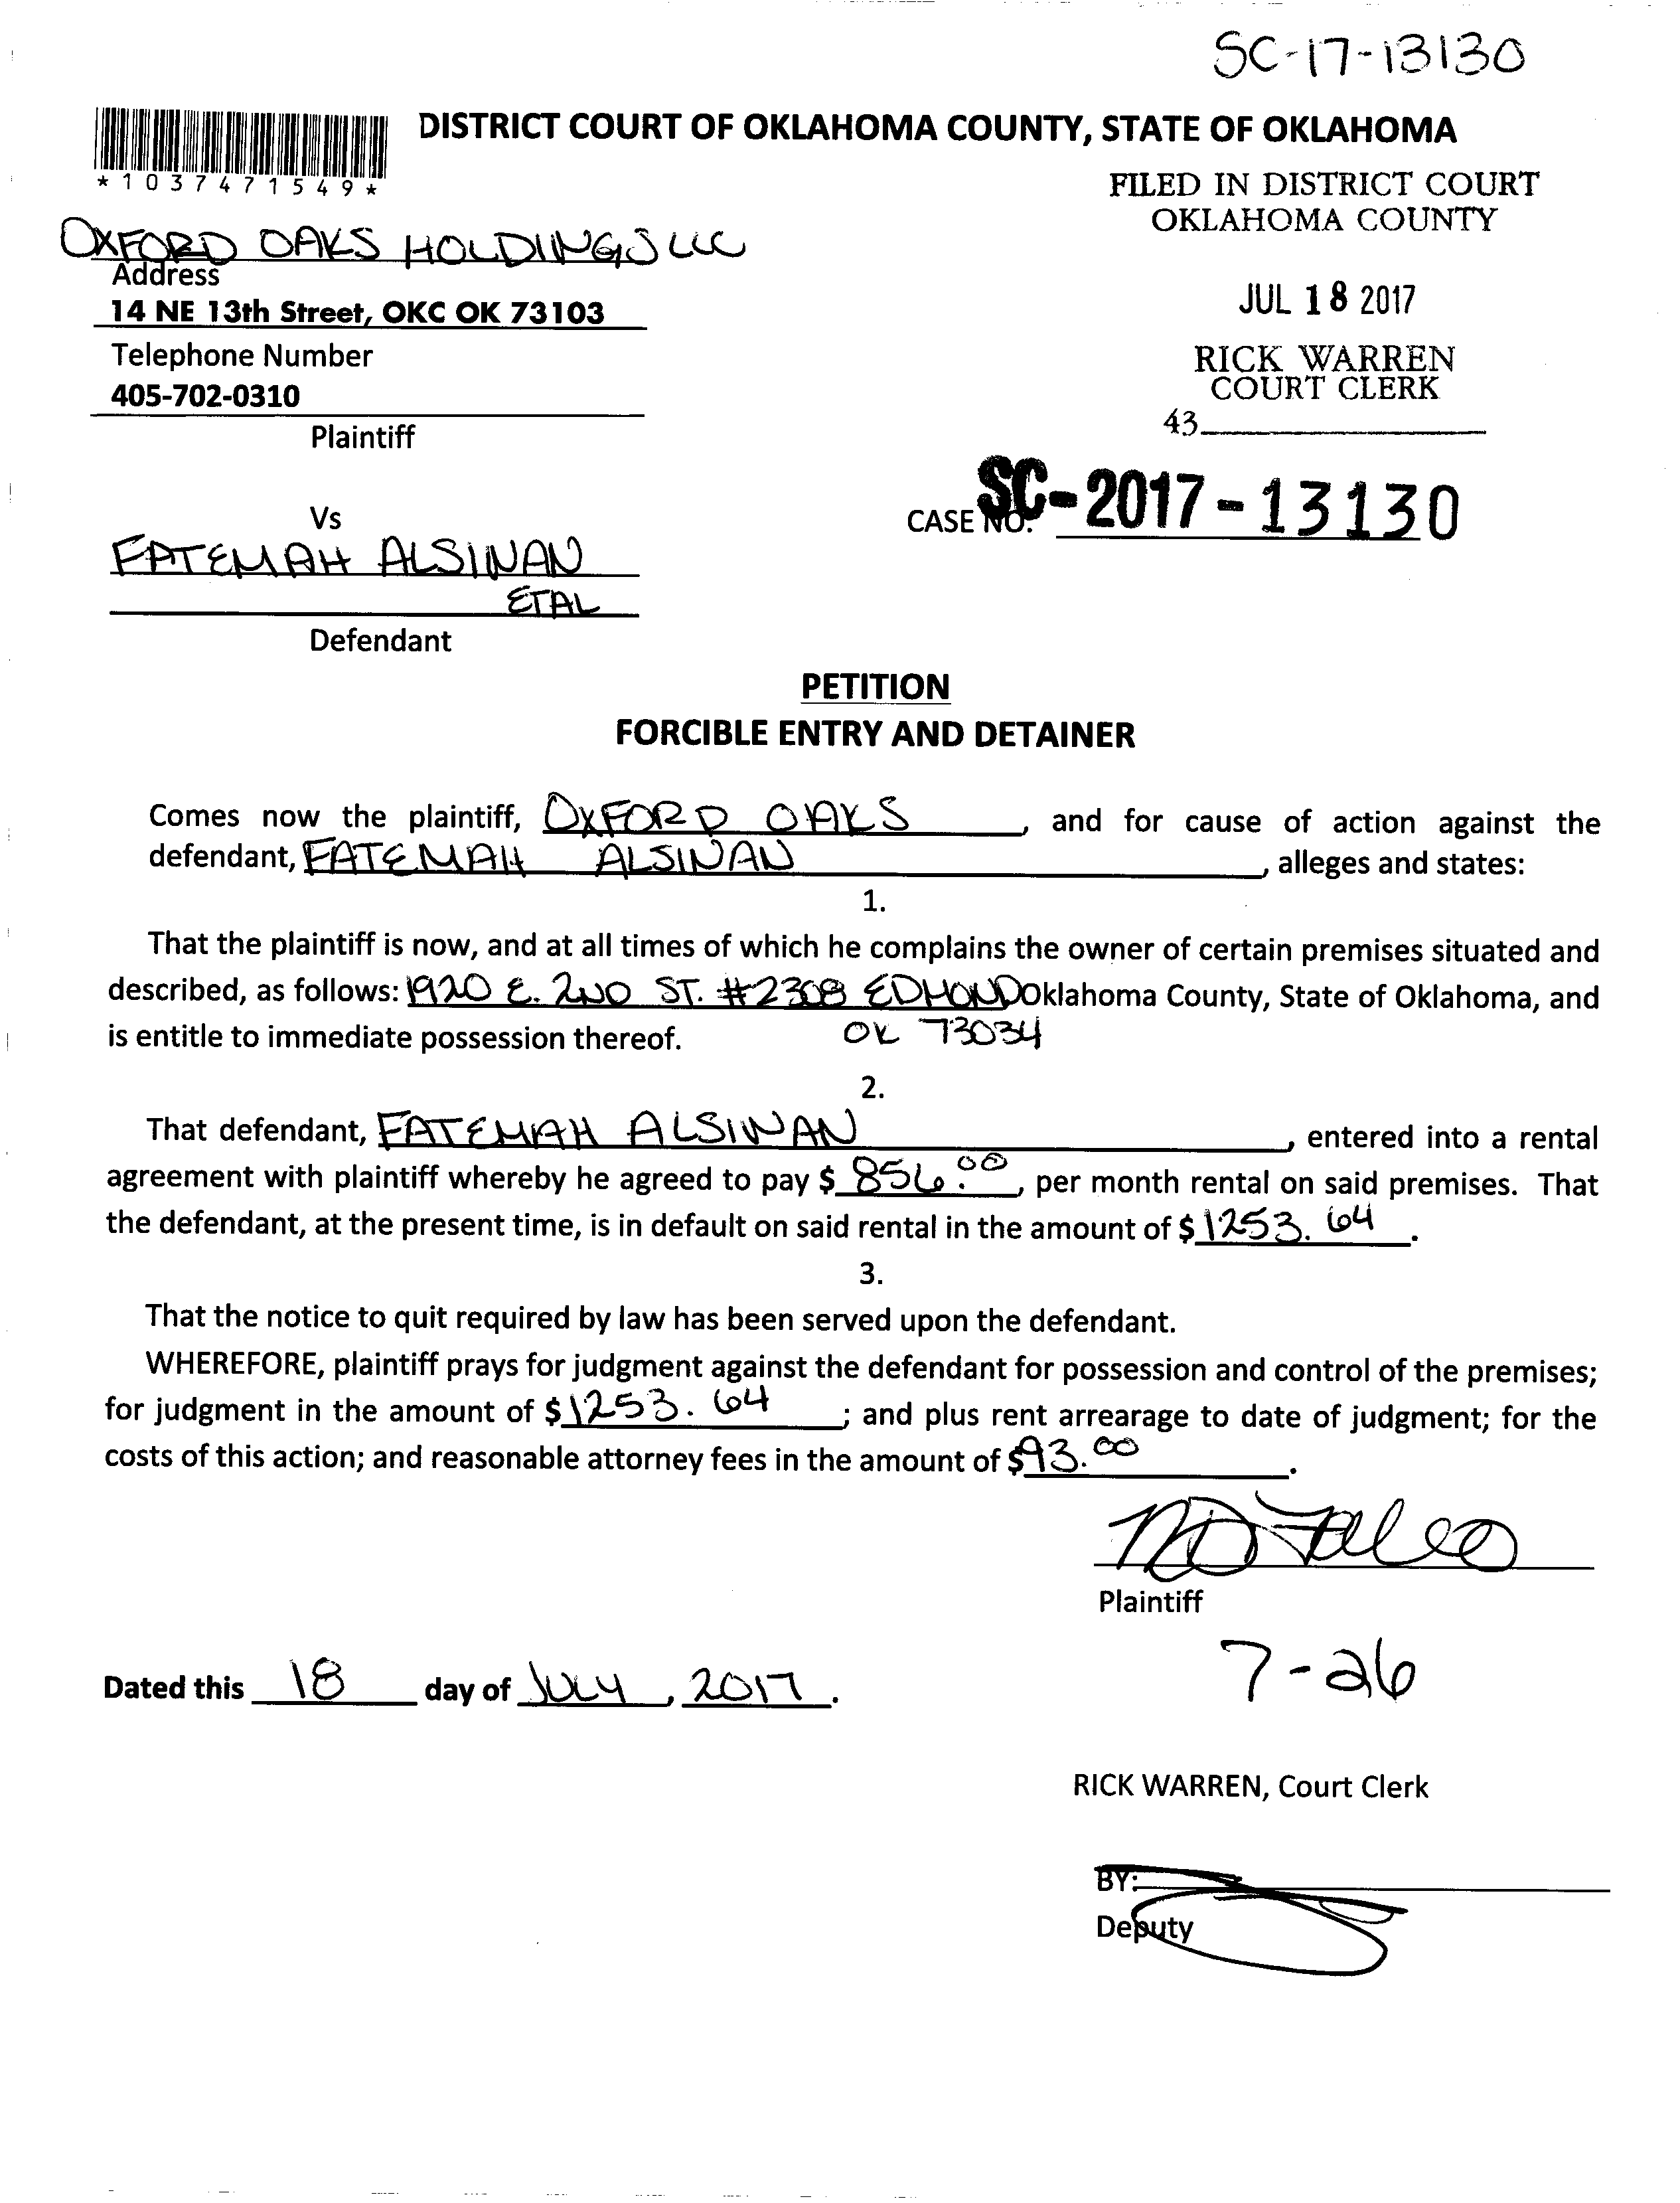 SC-17-13130
DISTRICT COURT OF OKLAHOMA COUNTY, STATE OF OKLAHOMA
*1037471549*
FILED IN DISTRICT COURT
OKLAHOMA COUNTY
OXFORD OAKS HOLDINGS LLC
Address
14 NE 13th Street, OKC OK 73103
JUL 18 2017
Telephone Number
405-702-0310
RICK WARREN
COURT CLERK
43
Plaintiff
SC-2017-13130
CASE NO.
Vs
FATEMAH ALSINAN
ETAL
Defendant
PETITION
FORCIBLE ENTRY AND DETAINER
Comes now the plaintiff, OXFORD OAKS, and for cause of action against the
defendant, FATEMAH ALSINAN, alleges and states:
1.
That the plaintiff is now, and at all times of which he complains the owner of certain premises situated and
described, as follows: 1920 E. 2ND ST. #2308 EDMOND Oklahoma County, State of Oklahoma, and
is entitle to immediate possession thereof. OK 73034
2.
That defendant, FATEMAH ALSINAN, entered into a rental
agreement with plaintiff whereby he agreed to pay $ 856.00, per month rental on said premises. That
the defendant, at the present time, is in default on said rental in the amount of $ 1253.64.
3.
That the notice to quit required by law has been served upon the defendant.
WHEREFORE, plaintiff prays for judgment against the defendant for possession and control of the premises;
for judgment in the amount of $ 1253.64; and plus rent arrearage to date of judgment; for the
costs of this action; and reasonable attorney fees in the amount of $93.00.
Plaintiff
7-26
Dated this 18 day of JULY, 2017.
RICK WARREN, Court Clerk
BY:
Deputy